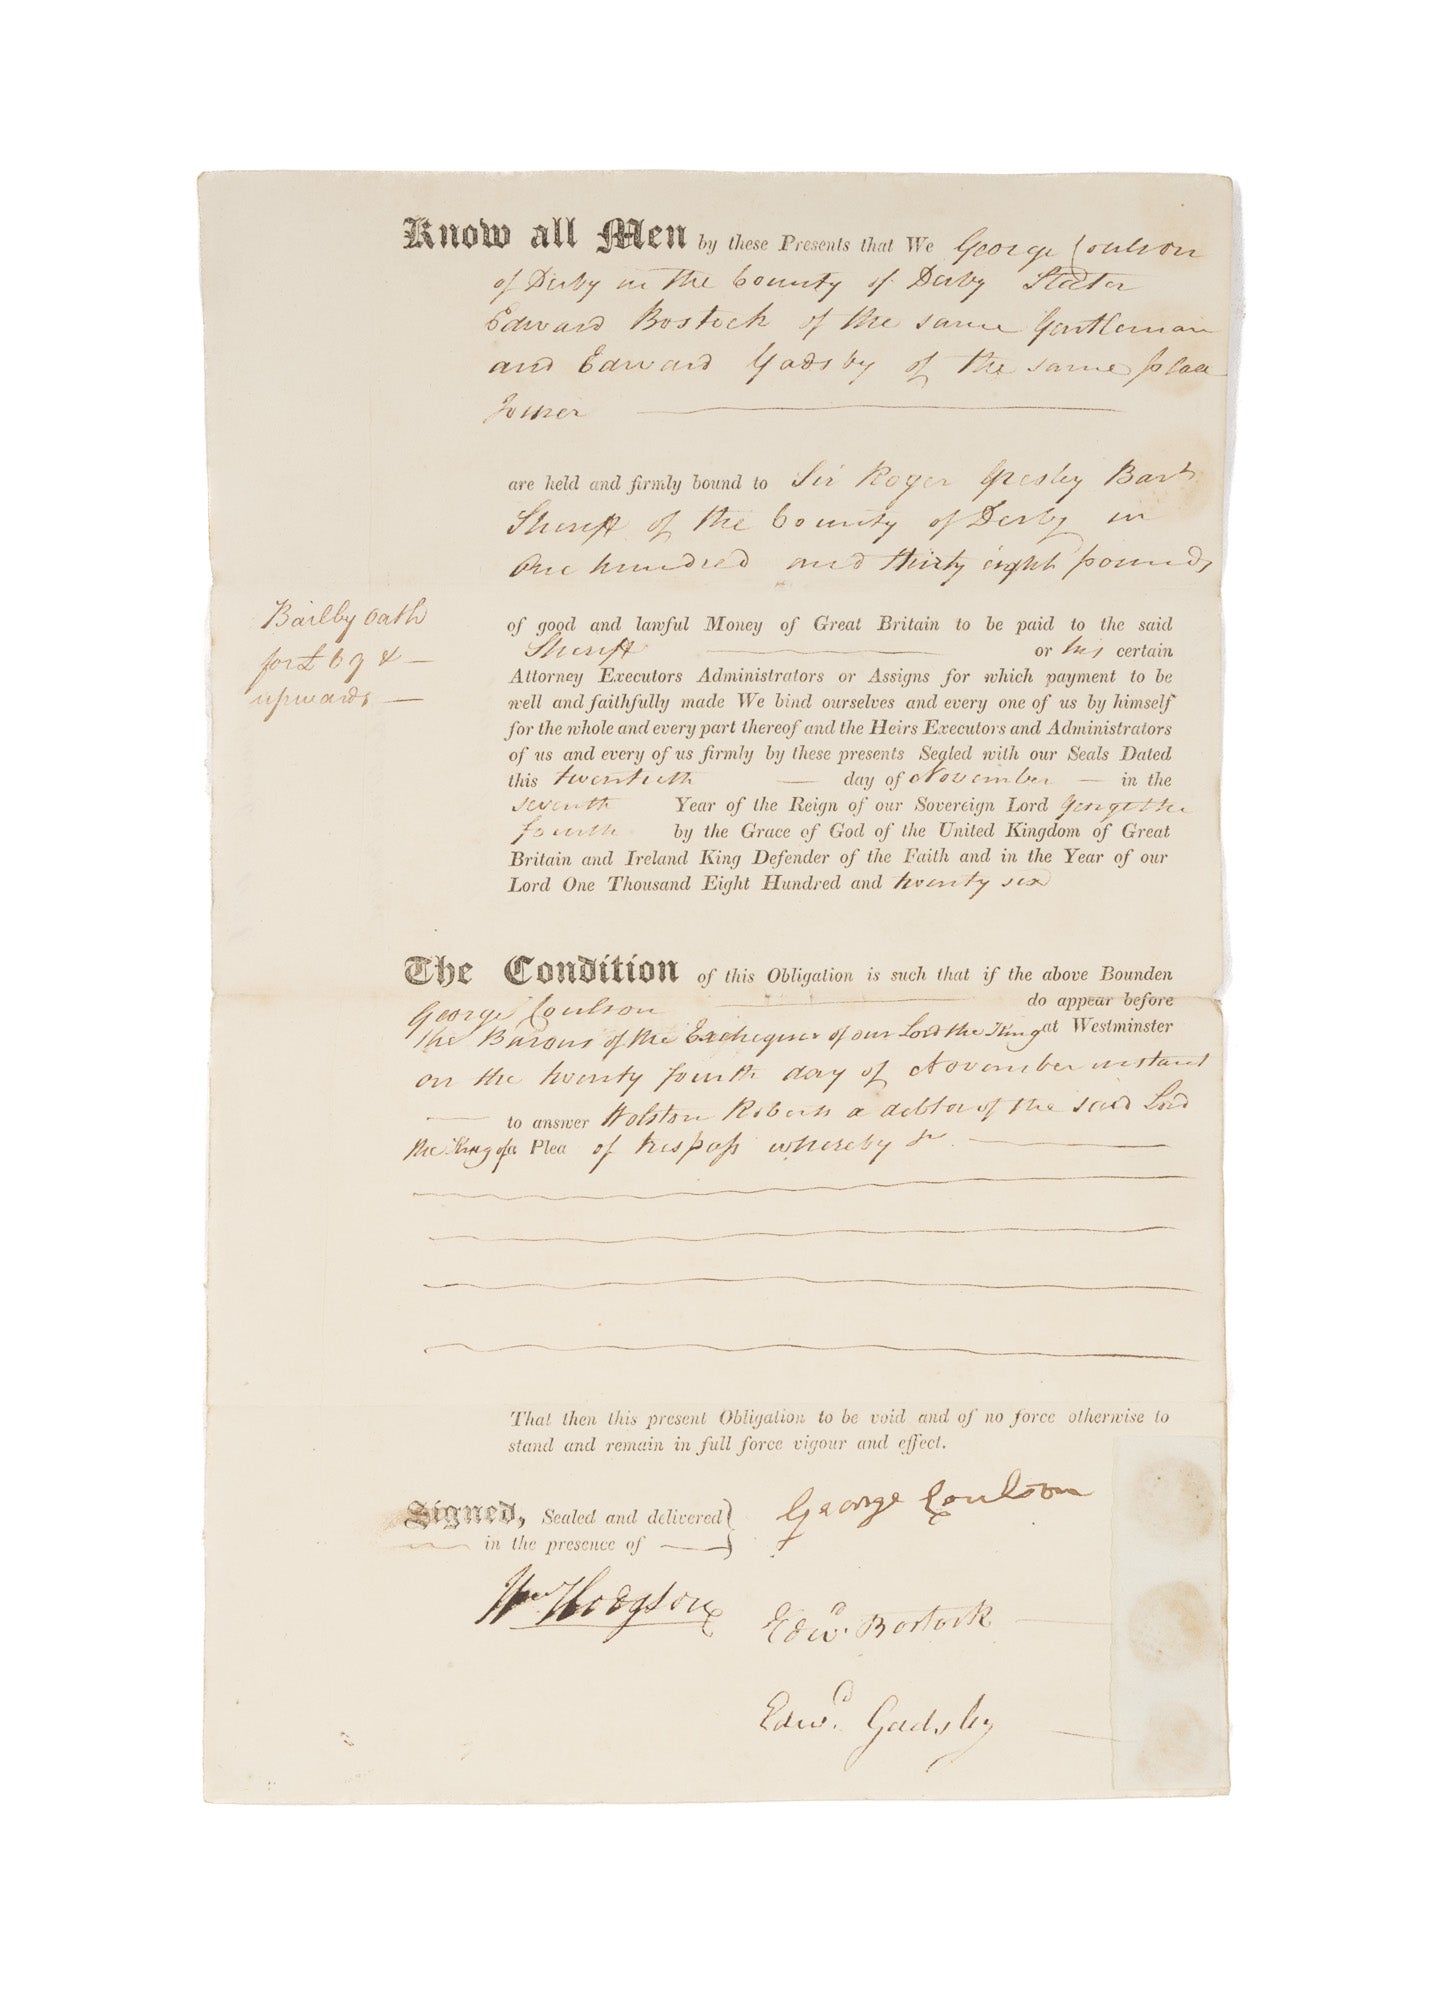 Know all Men by these Presents that We George Coulson
of Derby in the County of Derby Slater
Edward Bostock of the same Gentleman
and Edward Gadsby of the same place
Joiner
are held and firmly bound to Sir Roger Gresley Bart
Sheriff of the County of Derby in
One hundred and thirty eight pounds
Bail by oath
for £69 &
upwards
of good and lawful Money of Great Britain to be paid to the said
Sheriff or his certain
Attorney Executors Administrators or Assigns for which payment to be
well and faithfully made We bind ourselves and every one of us by himself
for the whole and every part thereof and the Heirs Executors and Administrators
of us and every of us firmly by these presents Sealed with our Seals Dated
this twentieth day of November in the
seventh Year of the Reign of our Sovereign Lord George the
fourth by the Grace of God of the United Kingdom of Great
Britain and Ireland King Defender of the Faith and in the Year of our
Lord One Thousand Eight Hundred and twenty six
The Condition of this Obligation is such that if the above Bounden
George Coulson do appear before
the Barons of the Exchequer of our Lord the King at Westminster
on the twenty fourth day of November instant
to answer Holston Roberts a debtor of the said Lord
the King of a Plea of trespass whereby &c
That then this present Obligation to be void and of no force otherwise to
stand and remain in full force vigour and effect.
Signed, Sealed and delivered George Coulson
in the presence of
Wm Hodgson Edwd. Bostock
Edwd. Gadsby